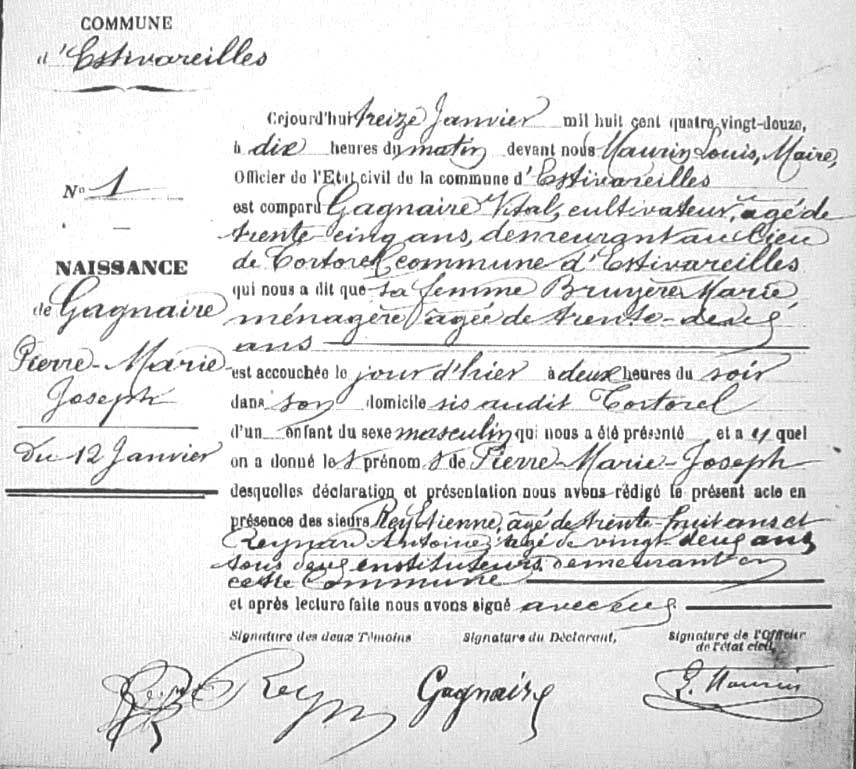 COMMUNE
d'Estivareilles
No 1
NAISSANCE
de Gagnaire
Pierre-Marie-
Joseph
Du 12 Janvier
Cejourd'hui treize Janvier mil huit cent quatre-vingt-douze,
à dix heures du matin devant nous Maurin Louis, Maire,
Officier de l'Etat civil de la commune d'Estivareilles
est comparu Gagnaire Vital, cultivateur, agé de
trente cinq ans, demeurant au lieu
de Tortorel commune d'Estivareilles
qui nous a dit que sa femme Bruyère Marie
ménagère agée de trente-deux
ans
est accouchée le jour d'hier à deux heures du soir
dans son domicile sis audit Tortorel
d'un enfant du sexe masculin qui nous a été présenté et a quel
on a donné les prénoms de Pierre-Marie-Joseph
desquelles déclaration et présentation nous avons rédigé le présent acte en
présence des sieurs Rey Etienne, agé de trente-huit ans et
Antoine agé de vingt deux ans
tous deux instituteurs demeurant en
cette Commune
et après lecture faite nous avons signé avec eux
Signature des deux Témoins Signature du Déclarant, Signature de l'Officier
de l'état civil,
Rey Gagnaire Maurin